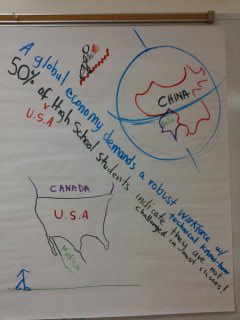 A global economy demands a robust workforce w/
technical know-how
50% of High School Students
U.S.A
indicate they are not
challenged in most classes!
CHINA
India
CANADA
U.S.A
Mexico